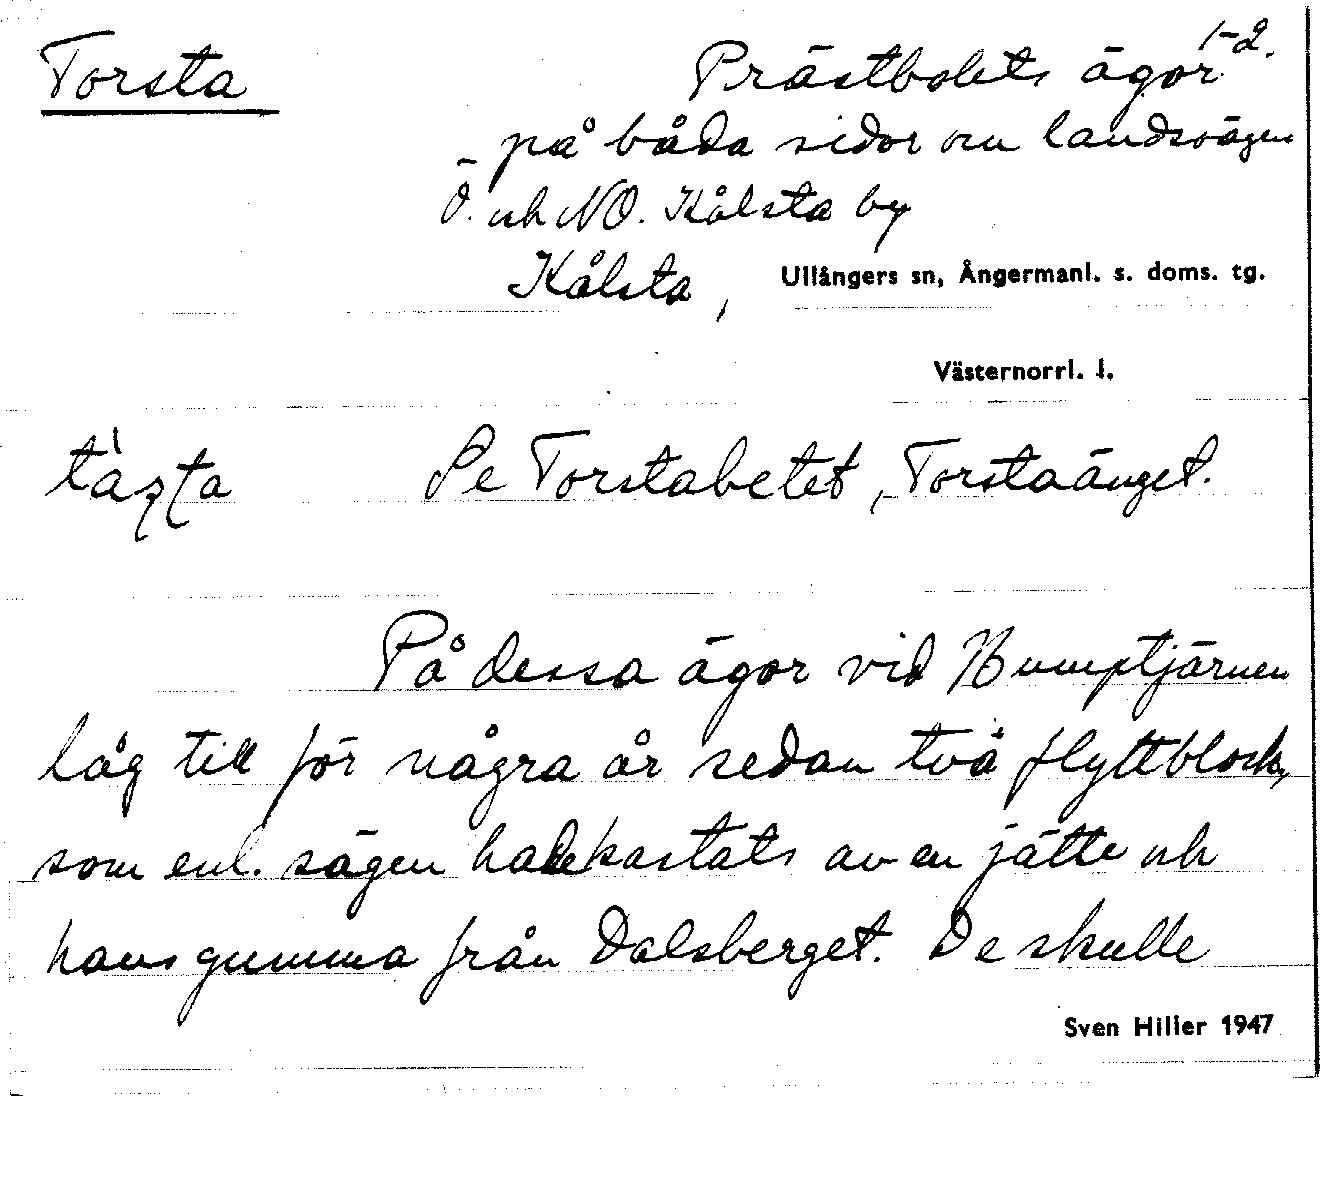 Torsta
1-2.
Prästbolets ägor
på båda sidor om landsvägen
Ö. och NO. Kålsta by
Kålsta, Ullångers sn, Ångermanl. s. doms. tg.
Västernorrl. l.
Se Torstabetet, Torstaänget.
På dessa ägor vid Humptjärnen
låg till för några år sedan två flyttblock,
som enl. sägen hade kastats av en jätte och
hans gumma från Dalsberget. De skulle
Sven Hilier 1947